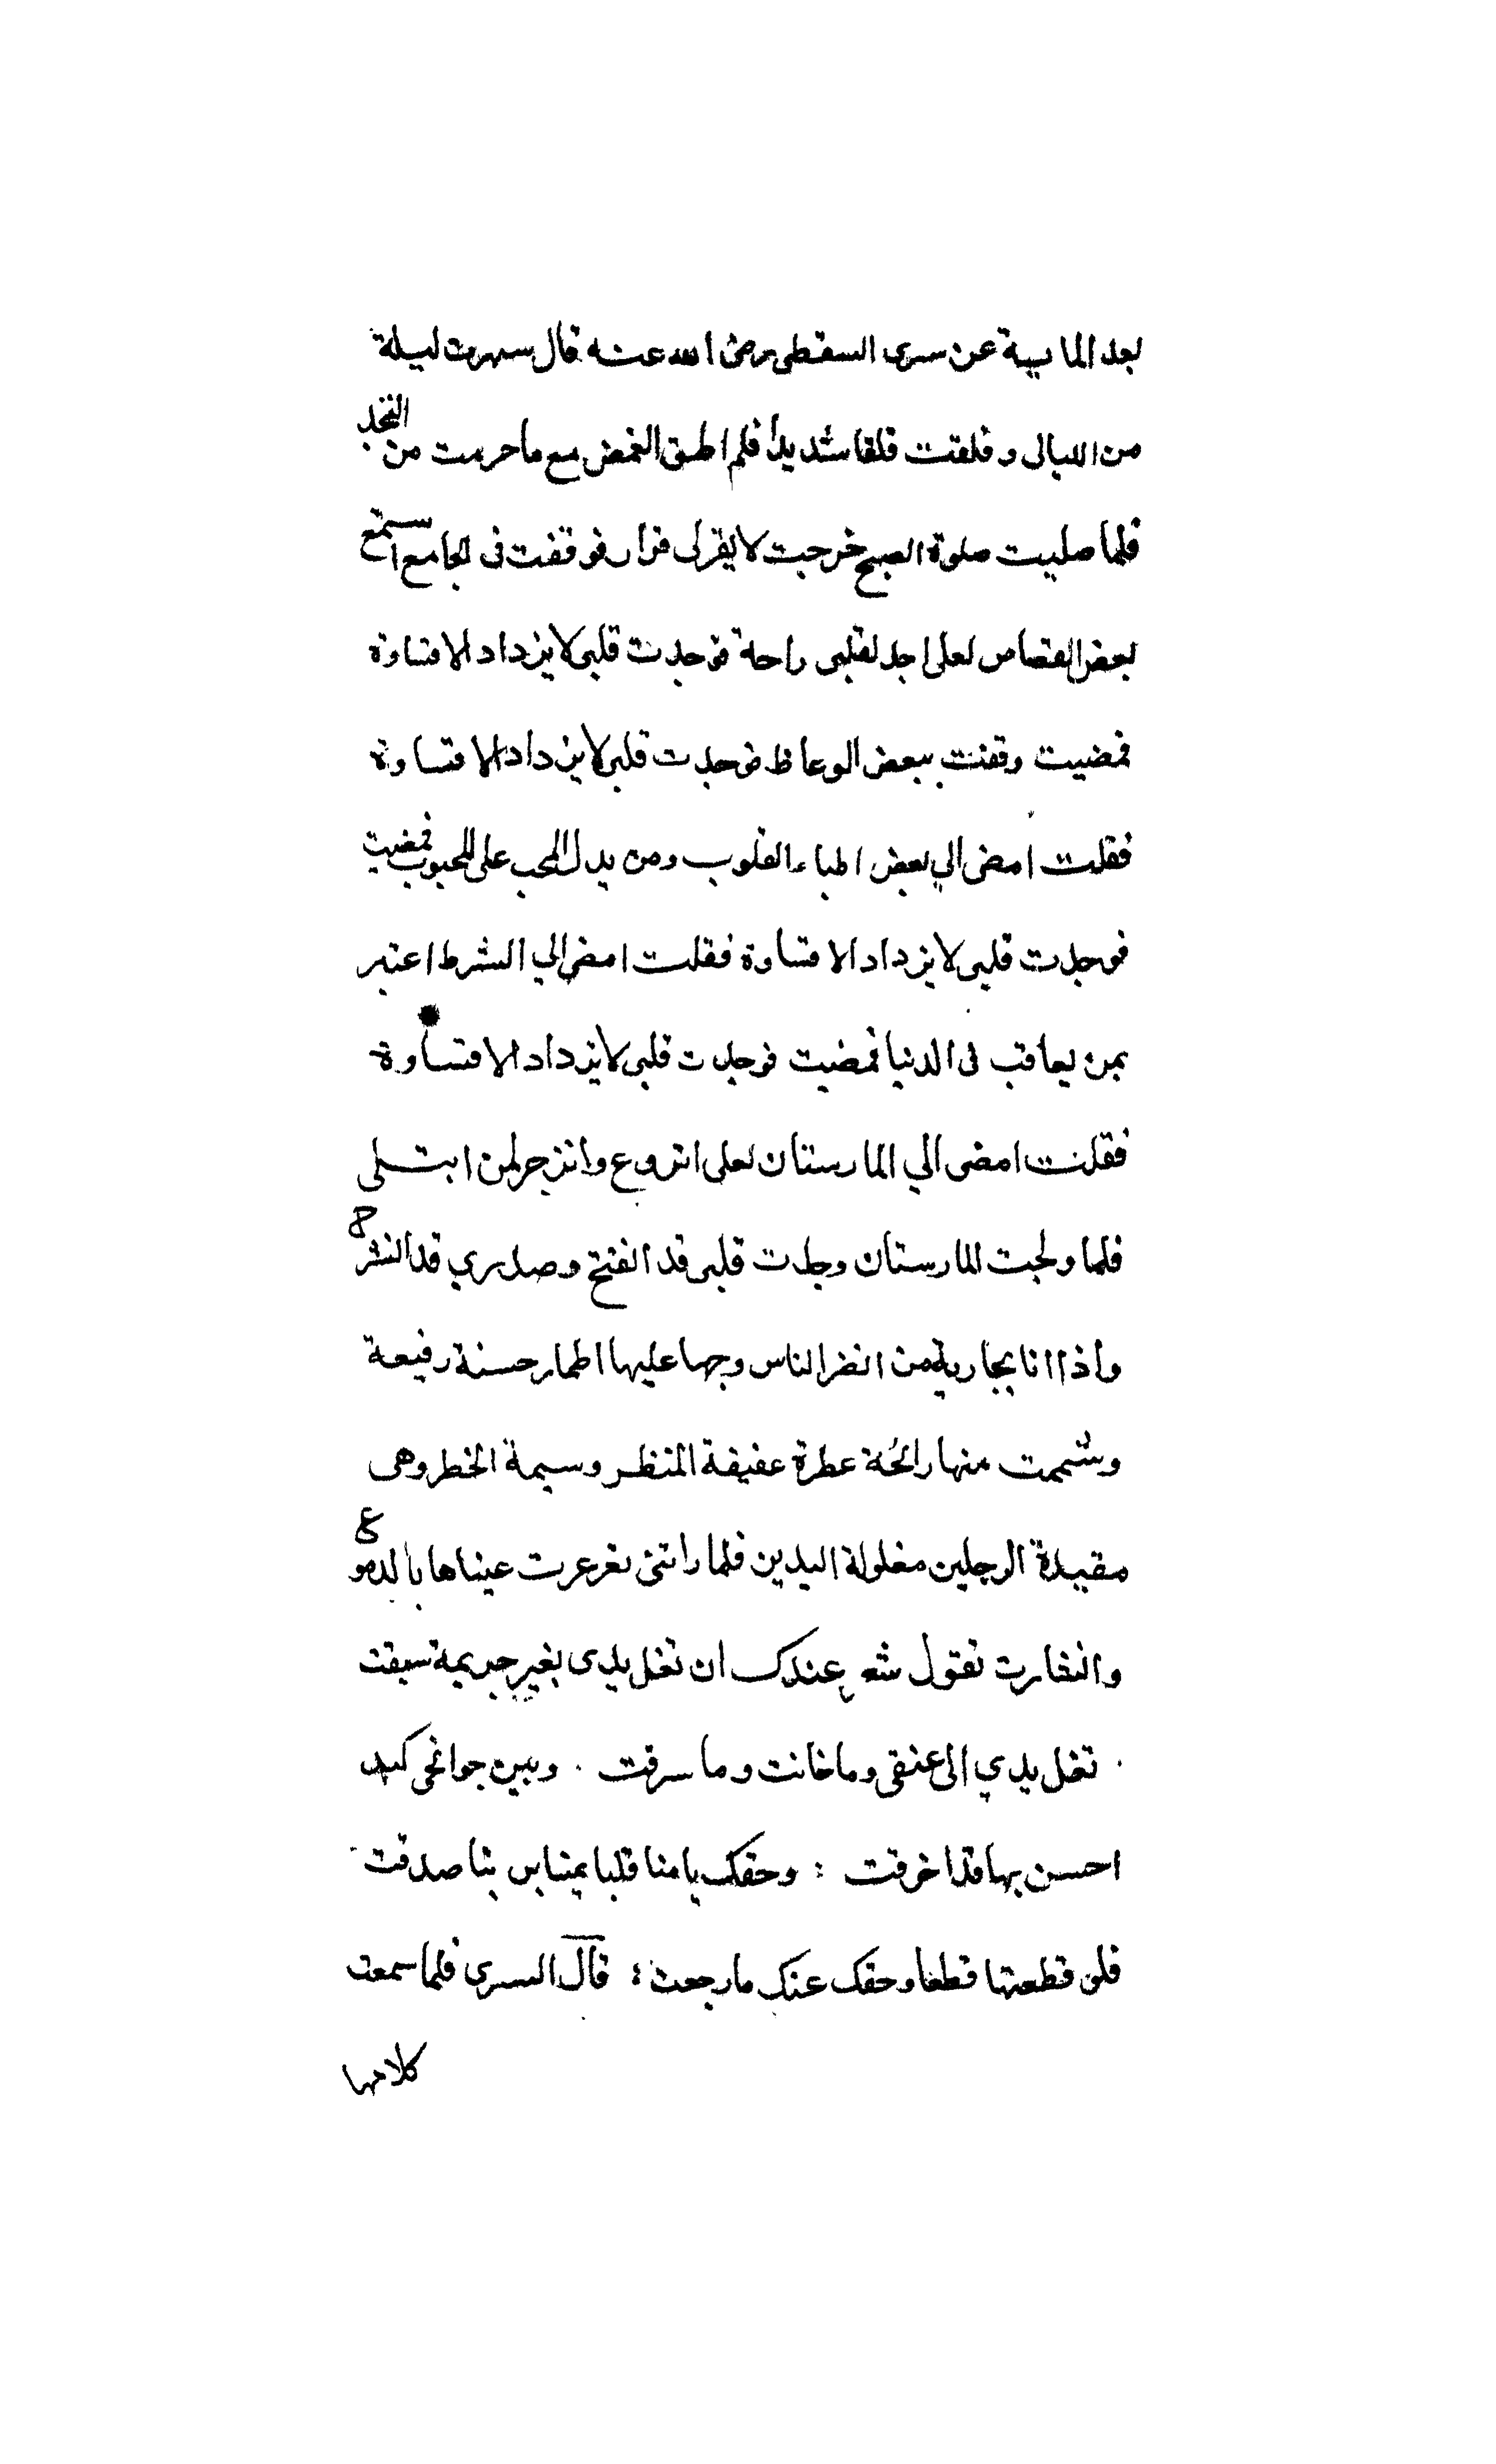 بعد الماىية عن سرى السقطى رضى الله عنه قال سهرت ليلة
من الليالى وقلقت قلقا شديدا فلم اطق الغمض مع ما حرمت من التهجد
فلما صليت صلوة الصبح خرجت لا يقر لى قرار فوقفت فى الجامع استمع
لبعض القصاص لعلى اجد لقلبى راحة فوجدت قلبى لا يزداد الا قساوة
فمضيت وقفت ببعض الوعاظ فوجدت قلبى لا يزداد الا قساوة
فقلت امضى الي بعض اطباء القلوب ومن يدل المحب على المحبوب فمضيت
فوجدت قلبى لا يزداد الا قساوة فقلت امضى الي الشرط اعتبر
بمن يعاقب فى الدنيا فمضيت فوجدت قلبى لا يزداد الا قساوة
فقلت امضى الي المارستان لعلى اتروع وانزجر لمن ابتلى
فلما ولجت المارستان وجدت قلبى قد انفتح وصدري قد انشرح
واذا انا بجارية من انضر الناس وجها عليها اطمار حسنة رفيعة
وشممت منها رائحة عطرة عفيفة المنظر وسيمة الخطر وهى
مقيدة الرجلين مغلولة اليدين فلما راتنى تغرغرت عيناها بالدموع
وانشارت تقول شعر عندك ان تغل يدى بغير جريمة سبقت
تغل يدي الى عنقى وما خانت وما سرقت . وبين جوانحى كبد
احسن بها قد احرقت : وحقك يا منا قلبا يمينا بر بنا صدقت
فلو قطعتها قطعا وحقك عنك ما رجعت : قال السرى فلما سمعت
كلامها